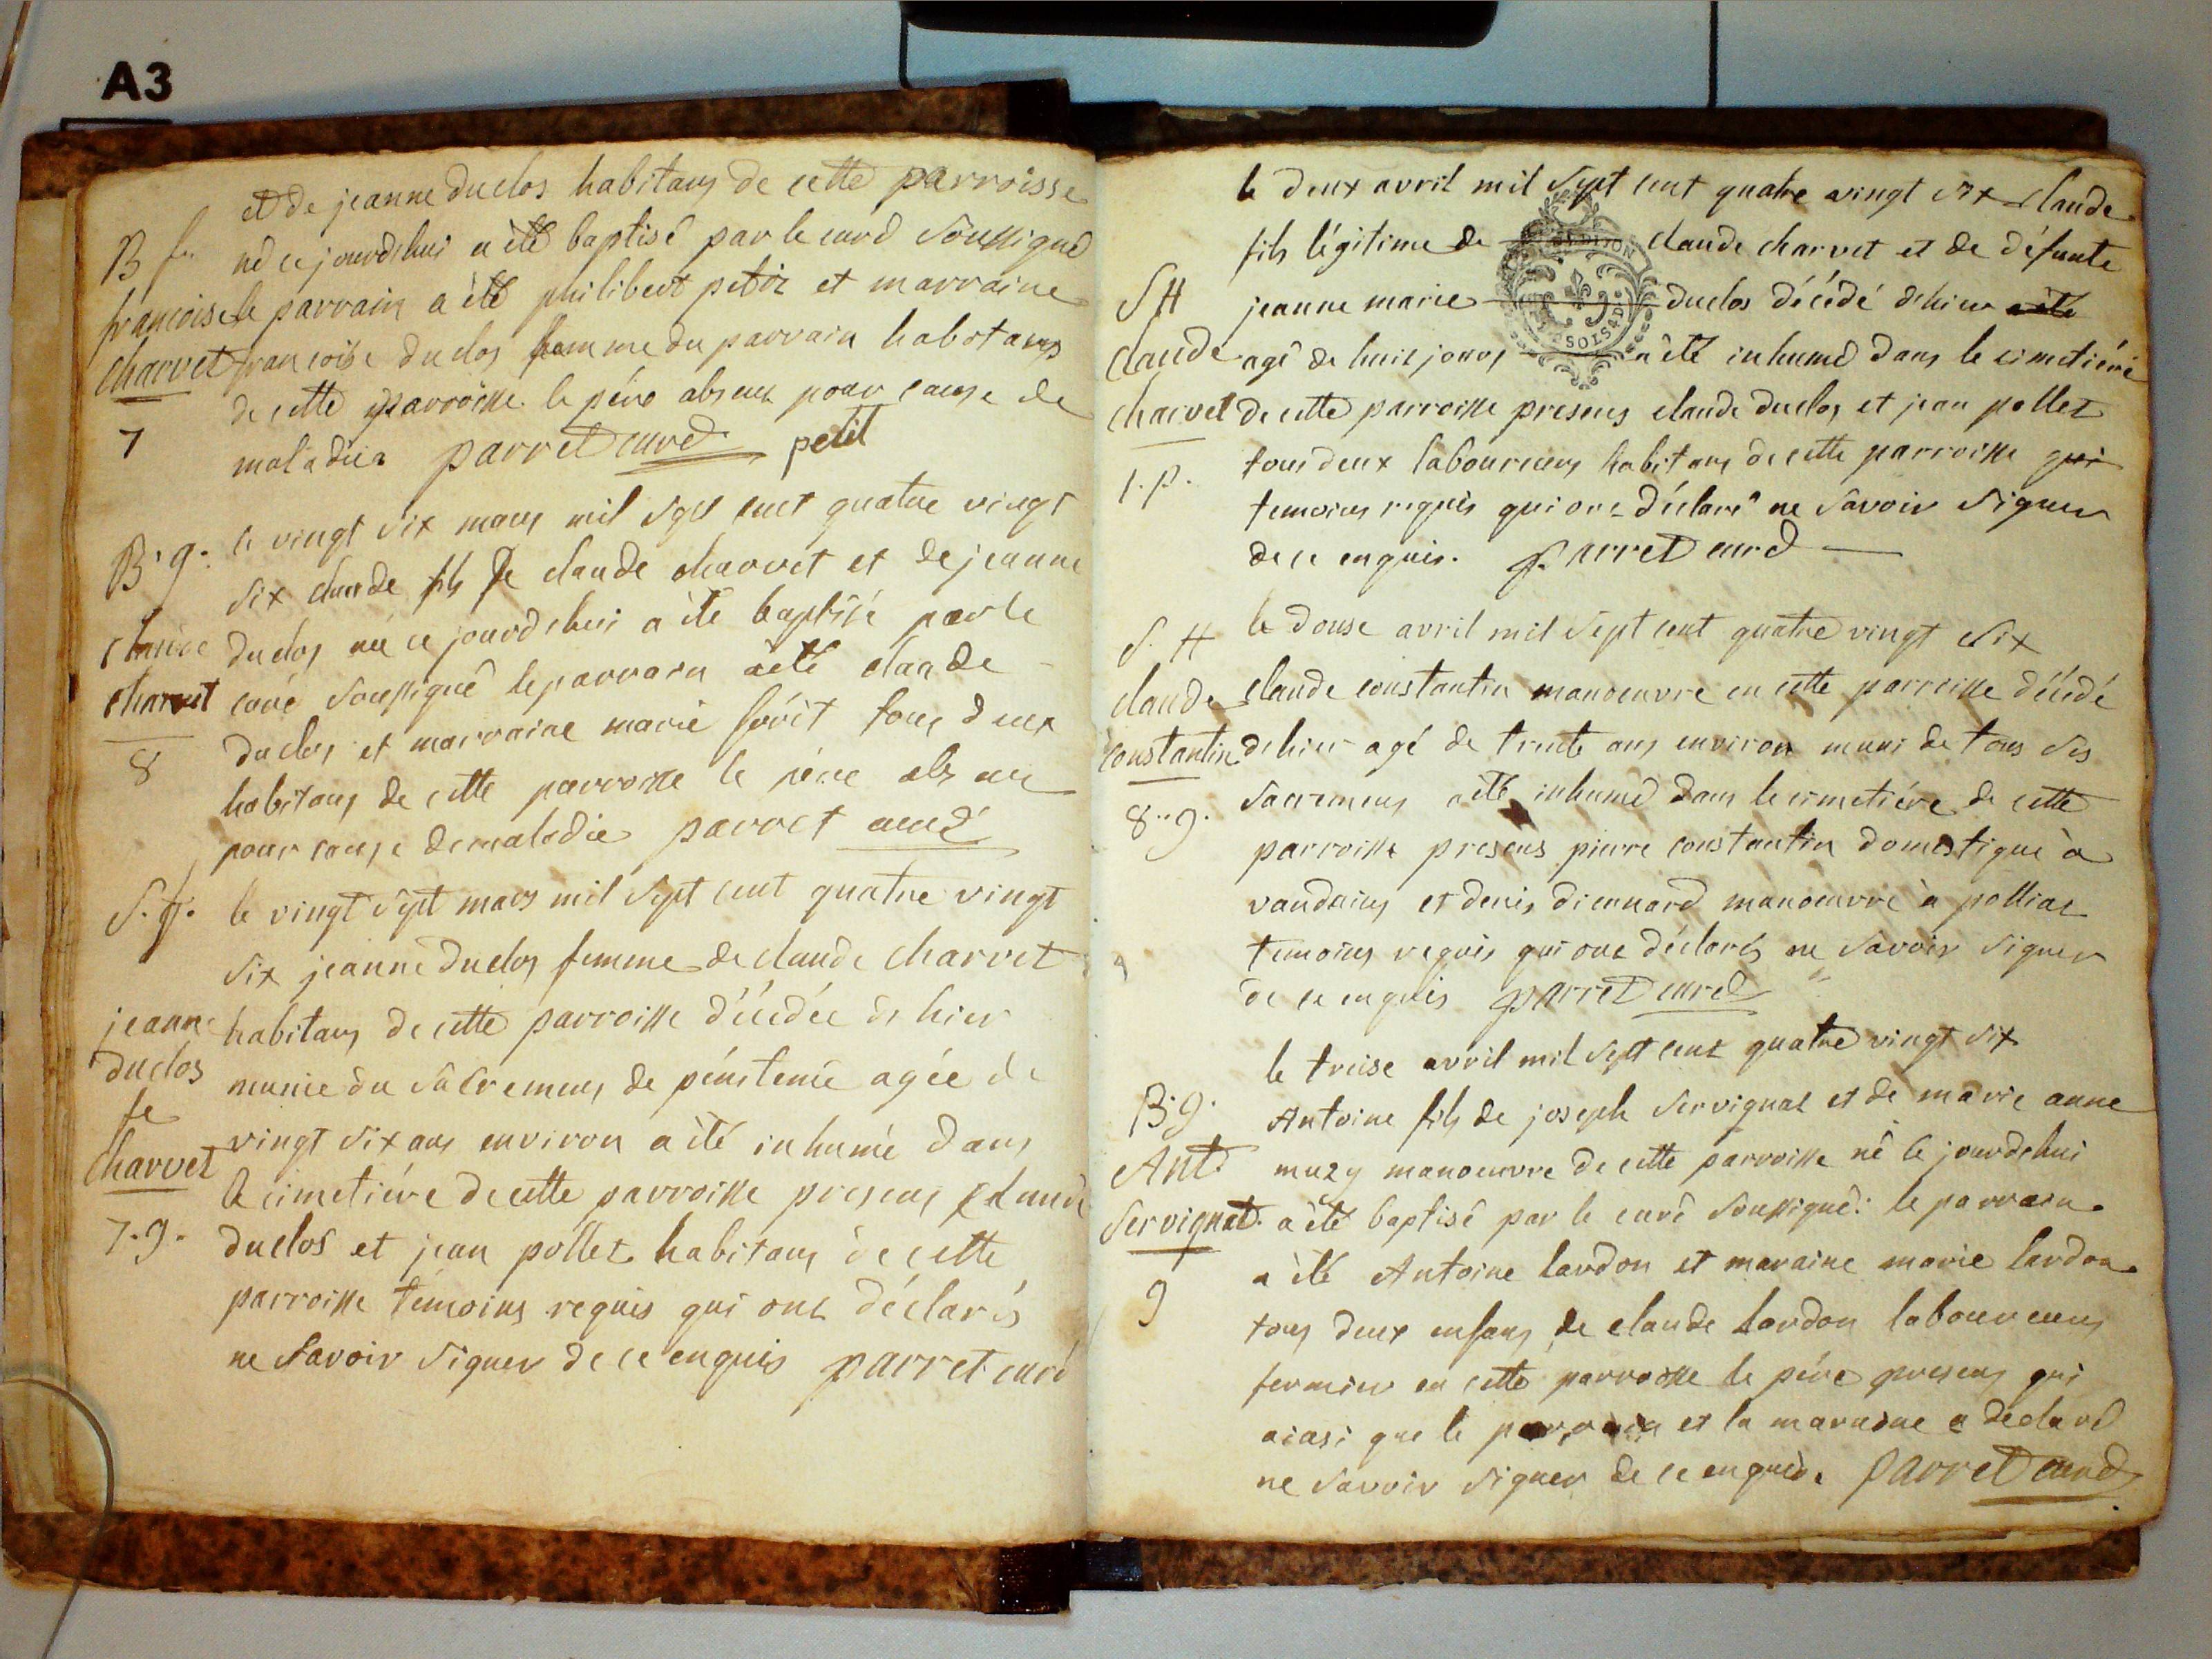 A3
et de jeanne duclos habitans de cette parroisse
B f.
né ce jourdhui a èté baptisé par le curé Soussigné
francoise
le parrain a èté philibert petit et marraine
charvet
francoise duclos femme du parrain habitans
de cette parroisse le pére absent pour cause de
7
maladie parret curé petit
B. g.
le vingt Six mars mil Sept cent quatre vingt
Six claude fils de claude charvet et de jeanne
claude
duclos né ce jourdhui a èté baptisé par le
charvet
curé Soussigné le parrain a èté claude
8
duclos et marraine marie tous deux
habitans de cette parroisse le pére absent
pour cause de maladie parret curé
S. f.
le vingt Sept mars mil Sept cent quatre vingt
Six jeanne duclos femme de claude charvet
jeanne
habitans de cette parroisse décédée dhier
duclos
munie du Sacremens de pénitence agée de
fe
vingt Six ans environ a èté inhumé dans
charvet
le cimetiére de cette parroisse presens claude
7. g.
duclos et jean pollet habitans de cette
parroisse témoins requis qui ont déclarés
ne Savoir Signer de ce enquis parret curé
le deux avril mil Sept cent quatre vingt Six claude
fils légitime de claude charvet et de défunte
S H
jeanne marie duclos décédé dhier a èté
claude
agé de huit jours a èté inhumé dans le cimetiére
charvet
de cette parroisse presens claude duclos et jean pollet
1. p.
tous deux laboureurs habitans de cette parroisse qui
temoins requis qui ont déclaré ne Savoir Signer
de ce enquis. parret curé
S. H
le douse avril mil Sept cent quatre vingt Six
claude
claude constantin manoeuvre en cette parroisse décédé
constantin
dhier agé de trente ans environ muni de tous Ses
8.. g.
Sacremens a èté inhumé dans le cimetiére de cette
parroisse presens pierre constantin domestique à
vandeins et denis diennard manoeuvre à polliat
temoins requis qui ont déclarés ne Savoir Signer
de ce enquis parret curé
le treise avril mil Sept cent quatre vingt Six
B. g.
Antoine fils de joseph Servignat et de marie anne
Ant.
muzy manoeuvre de cette parroisse né le jourdhui
Servignat.
a èté baptisé par le curé Soussigné: le parrain
a èté Antoine lardon et maraine marie lardon
9
tous deux enfans de claude lardon laboureur
fermier en cette parroisse le pére presens qui
ainsi que le parrain et la maraine a déclaré
ne Savoir Signer de ce enquis. parret curé